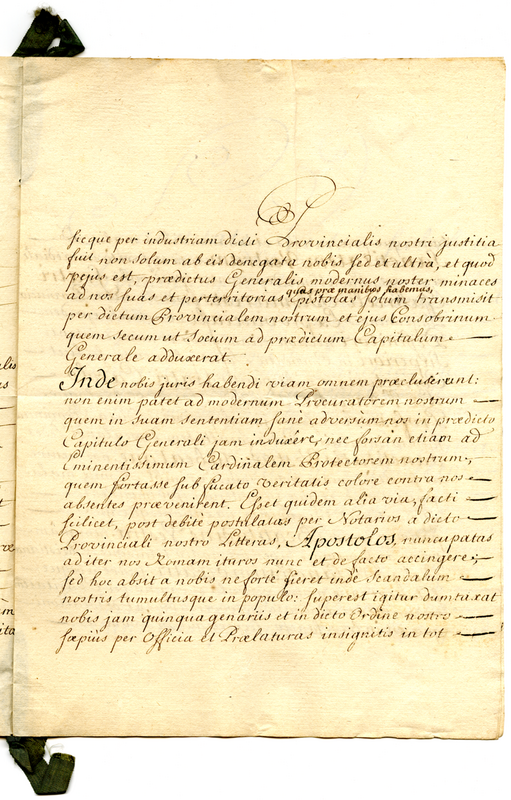 sicque per industriam dicti Provincialis nostri justitia
fuit non solum ab eis denegata nobis sed et ultrà, et quod
pejus est, prædictus Generalis modernus noster minaces
quas præ manibus habemus,
ad nos suas et perterritorias Epistolas solum transmisit
per dictum Provincialem nostrum et ejus Consobrinum
quem secum ut Socium ad prædictum Capitulum
Generale adduxerat.
Inde nobis juris habendi viam omnem præcluserunt:
non enim patet ad modernum Procuratorem nostrum
quem in suam sententiam sanè adversùm nos in prædicto
Capitulo Generali jam induxêre, nec forsàn etiam ad
Eminentissimum Cardinalem Protectorem nostrum,
quem fortasse sub fucato veritatis colore contra nos
absentes prævenirent. Esset quidem alia via, facti
scilicet, post debitè postulatas per Notarios à dicto
Provinciali nostro Litteras, Apostolos, nuncupatas
ad iter nos Romam ituros nunc et de facto accingere;
sed hoc absit a nobis ne fortè fieret inde Scandalum
nostris tumultusque in populo: superest igitur dumtaxat
nobis jam quinquagenariis et in dicto Ordine nostro
sæpiùs per Officia et Prælaturas insignitis in tot